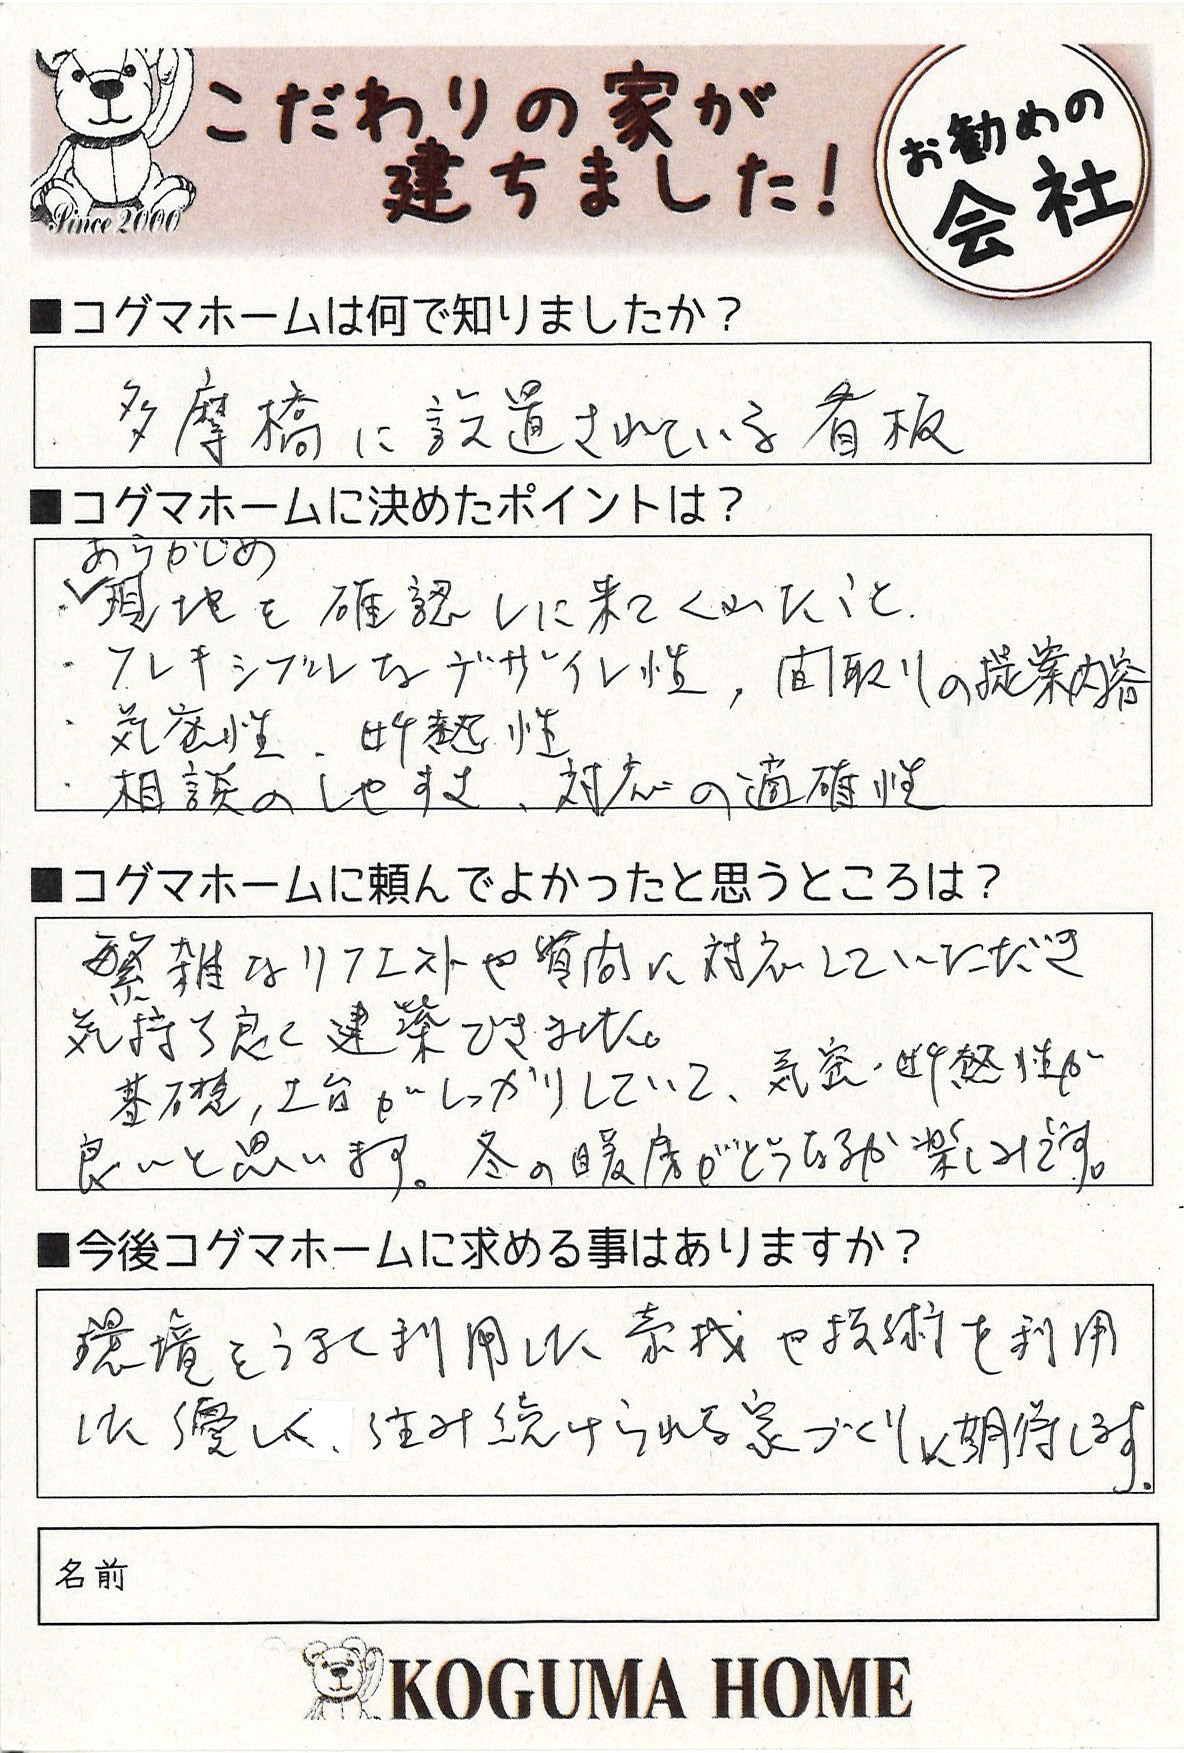 こだわりの家が
建ちました!
お勧めの
会社
Since 2000
■コグマホームは何で知りましたか?
多摩橋に設置されている看板
■コグマホームに決めたポイントは?
あらかじめ
・現地を確認しに来てくれたこと.
・フレキシブルなデザイン性,間取りの提案内容
・気密性、断熱性
・相談のしやすさ、対応の適確性
■コグマホームに頼んでよかったと思うところは?
繁雑なリクエストや質問に対応していただき
気持ち良く建築できました。
基礎,土台がしっかりしていて、気密・断熱性が
良いと思います。冬の暖房がどうなるか楽しみです。
■今後コグマホームに求める事はありますか?
環境をうまく利用した素材や技術を利用
した優しく、住み続けられる家づくりに期待します。
名前
KOGUMA HOME